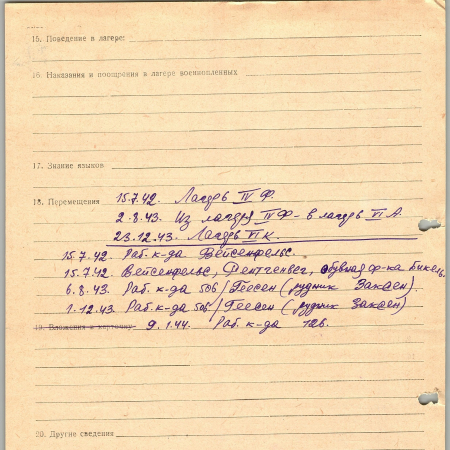 15. Поведение в лагере:
16. Наказания и поощрения в лагере военнопленных
17. Знание языков
18. Перемещения 15.7.42. Лагерь IV Ф.
2.8.43. Из лагеря IV Ф - в лагерь VI А.
23.12.43. Лагерь VI К.
15.7.42. Раб. к-да Вейсенфельс.
15.7.42. Вейсенфельс, Рентгенвег, обувная ф-ка
6.8.43. Раб. к-да 506/Геесен (рудник Заксен).
1.12.43. Раб. к-да 506/Геесен (рудник Заксен)
19. Вложения в карточку 9.1.44. Раб. к-да 126.
20. Другие сведения